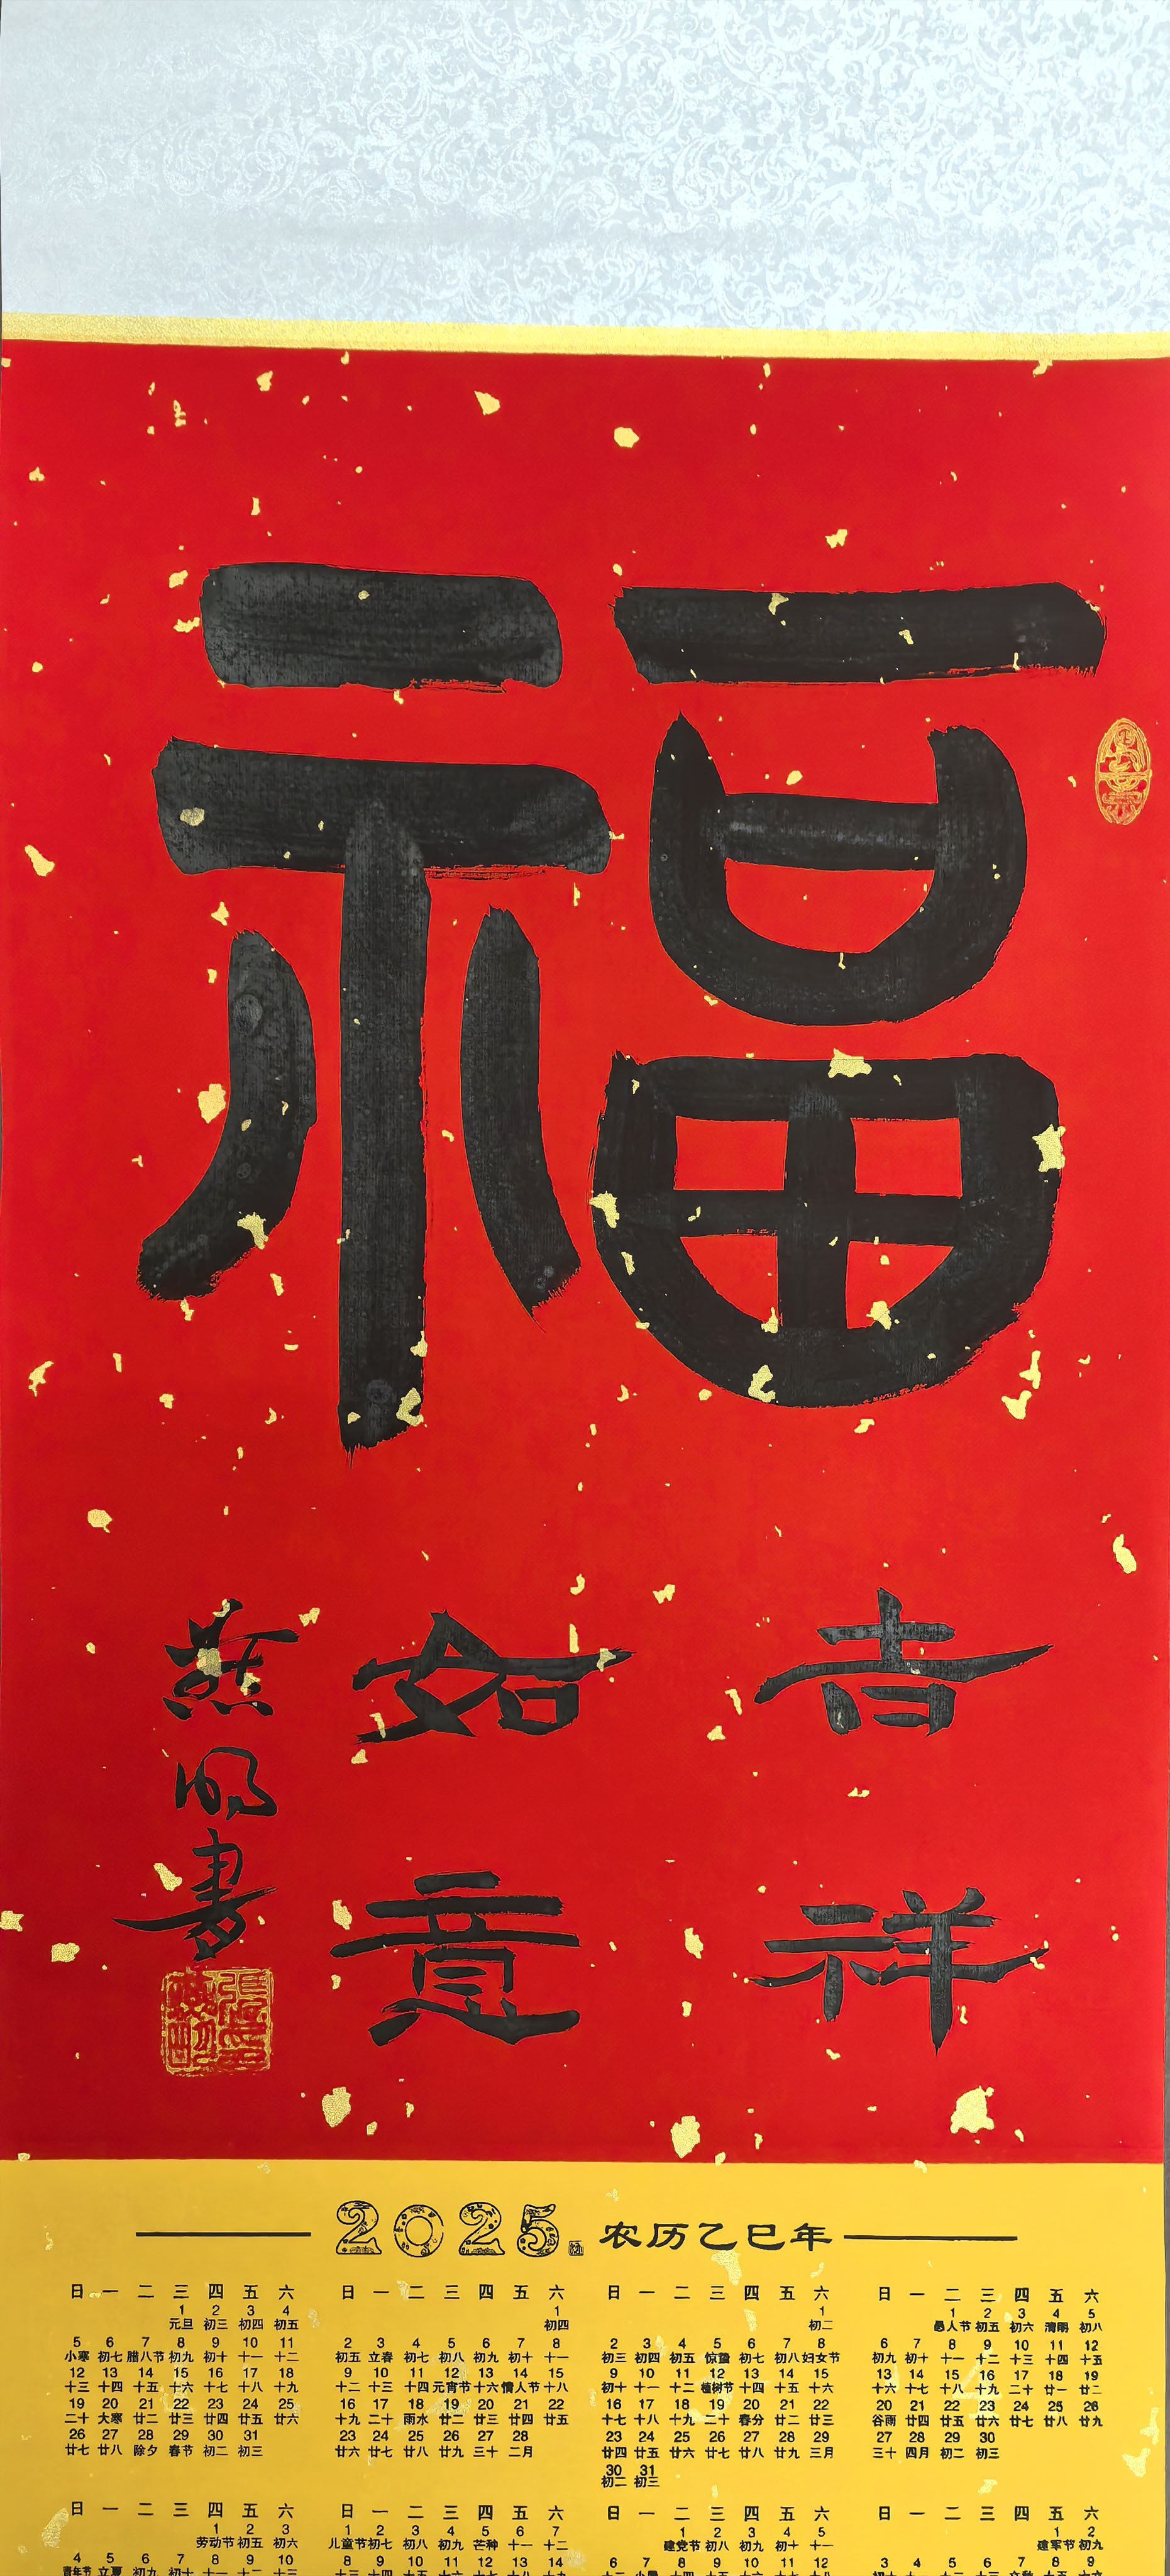 福
吉祥
如意
燕明書
2025 农历乙巳年
日 一 二 三 四 五 六
1 2 3 4
元旦 初三 初四 初五
5 6 7 8 9 10 11
小寒 初七 腊八节 初九 初十 十一 十二
12 13 14 15 16 17 18
十三 十四 十五 十六 十七 十八 十九
19 20 21 22 23 24 25
二十 大寒 廿二 廿三 廿四 廿五 廿六
26 27 28 29 30 31
廿七 廿八 除夕 春节 初二 初三
日 一 二 三 四 五 六
1
初四
2 3 4 5 6 7 8
初五 立春 初七 初八 初九 初十 十一
9 10 11 12 13 14 15
十二 十三 十四 元宵节 十六 情人节 十八
16 17 18 19 20 21 22
十九 二十 雨水 廿二 廿三 廿四 廿五
23 24 25 26 27 28
廿六 廿七 廿八 廿九 三十 二月
日 一 二 三 四 五 六
1
初二
2 3 4 5 6 7 8
初三 初四 初五 惊蛰 初七 初八 妇女节
9 10 11 12 13 14 15
初十 十一 十二 植树节 十四 十五 十六
16 17 18 19 20 21 22
十七 十八 十九 二十 春分 廿二 廿三
23 24 25 26 27 28 29
廿四 廿五 廿六 廿七 廿八 廿九 三月
30 31
初二 初三
日 一 二 三 四 五 六
1 2 3 4 5
愚人节 初五 初六 清明 初八
6 7 8 9 10 11 12
初九 初十 十一 十二 十三 十四 十五
13 14 15 16 17 18 19
十六 十七 十八 十九 二十 廿一 廿二
20 21 22 23 24 25 26
谷雨 廿四 廿五 廿六 廿七 廿八 廿九
27 28 29 30
三十 四月 初二 初三
日 一 二 三 四 五 六
1 2 3
劳动节 初五 初六
4 5 6 7 8 9 10
青年节 立夏 初九 初十 十一 十二 十三
日 一 二 三 四 五 六
1 2 3 4 5 6 7
儿童节 初七 初八 初九 芒种 十一 十二
8 9 10 11 12 13 14
日 一 二 三 四 五 六
1 2 3 4 5
建党节 初八 初九 初十 十一
6 7 8 9 10 11 12
日 一 二 三 四 五 六
1 2
建军节 初九
3 4 5 6 7 8 9